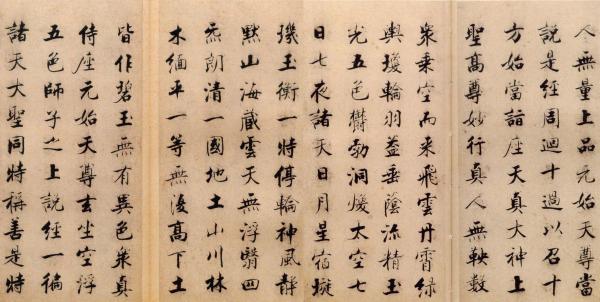 人無量上品元始天尊當
說是經周迴十過以召十
方始當詣座天真大神上
聖高尊妙行真人無鞅數
衆乘空而来飛雲丹霄緑
輿瓊輪羽蓋垂蔭流精玉
光五色鬱勃洞煥太空七
日七夜諸天日月星宿璇
璣玉衡一時停輪神風靜
默山海藏雲天無浮翳四
炁朗清一國地土山川林
木緬平一等無復高下土
皆作碧玉無有異色衆真
侍座元始天尊玄坐空浮
五色師子之上說經一徧
諸天大聖同時稱善是時